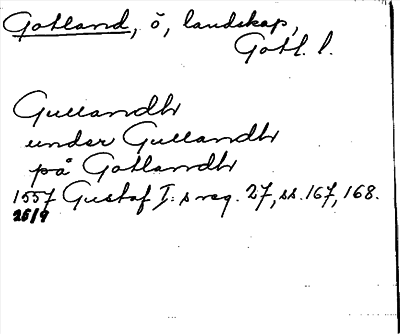 Gotland, ö, landskap,
Gotl. l.
Gullandh
under Gullandh
på Gotlandh
1557 Gustaf I:s reg. 27, ss. 167, 168.
26/9